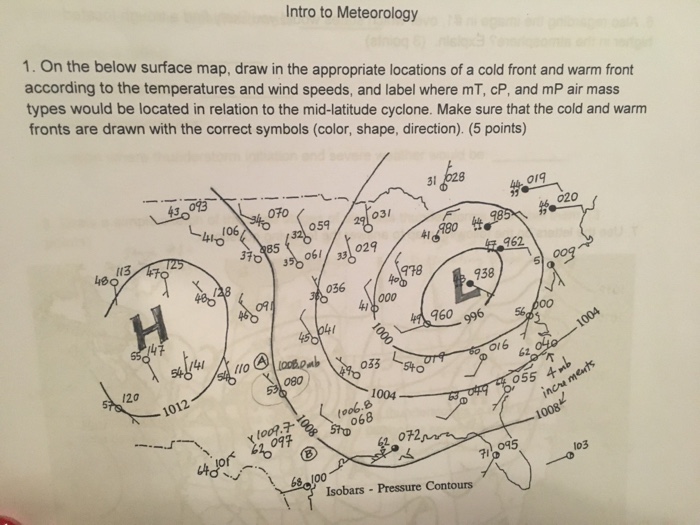 Intro to Meteorology
1. On the below surface map, draw in the appropriate locations of a cold front and warm front
according to the temperatures and wind speeds, and label where mT, cP, and mP air mass
types would be located in relation to the mid-latitude cyclone. Make sure that the cold and warm
fronts are drawn with the correct symbols (color, shape, direction). (5 points)
31 028
019
020
43 093
070
059
29 031
41 980
985
41 106
37 085
35 061
33 029
962
51 009
113
48
125
47
978
40
938
L
48 128
46 091
036
41 000
49 960
996
56 000
1004
H
45 041
1000
55 147
54 141
110
A
035
54 019
016
62 040
4 mb
increments
53 080
1004
63 049
055
120
57
1012
1006.8
068
1008
1008
1009.7
62 097
B
62 072
71 095
103
64 101
68 100
Isobars - Pressure Contours